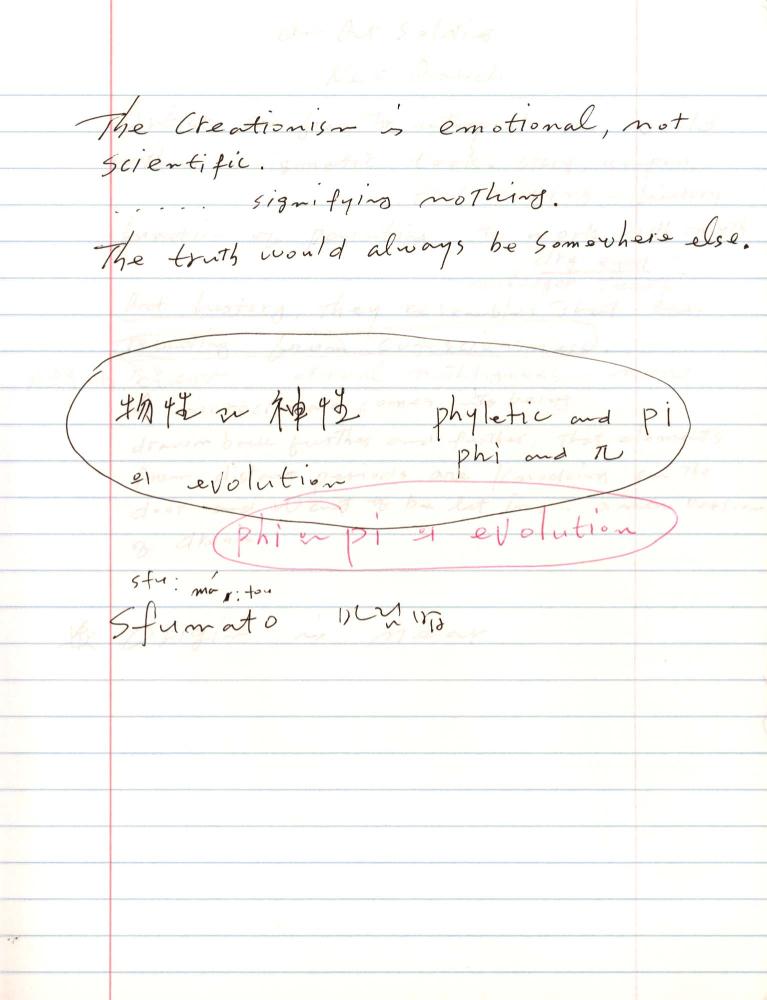 The Creationism is emotional, not
scientific.
..... signifying nothing.
The truth would always be somewhere else.
物性와 神性 phyletic and pi
phi and π
의 evolution
phi와 pi의 evolution
Sfumato